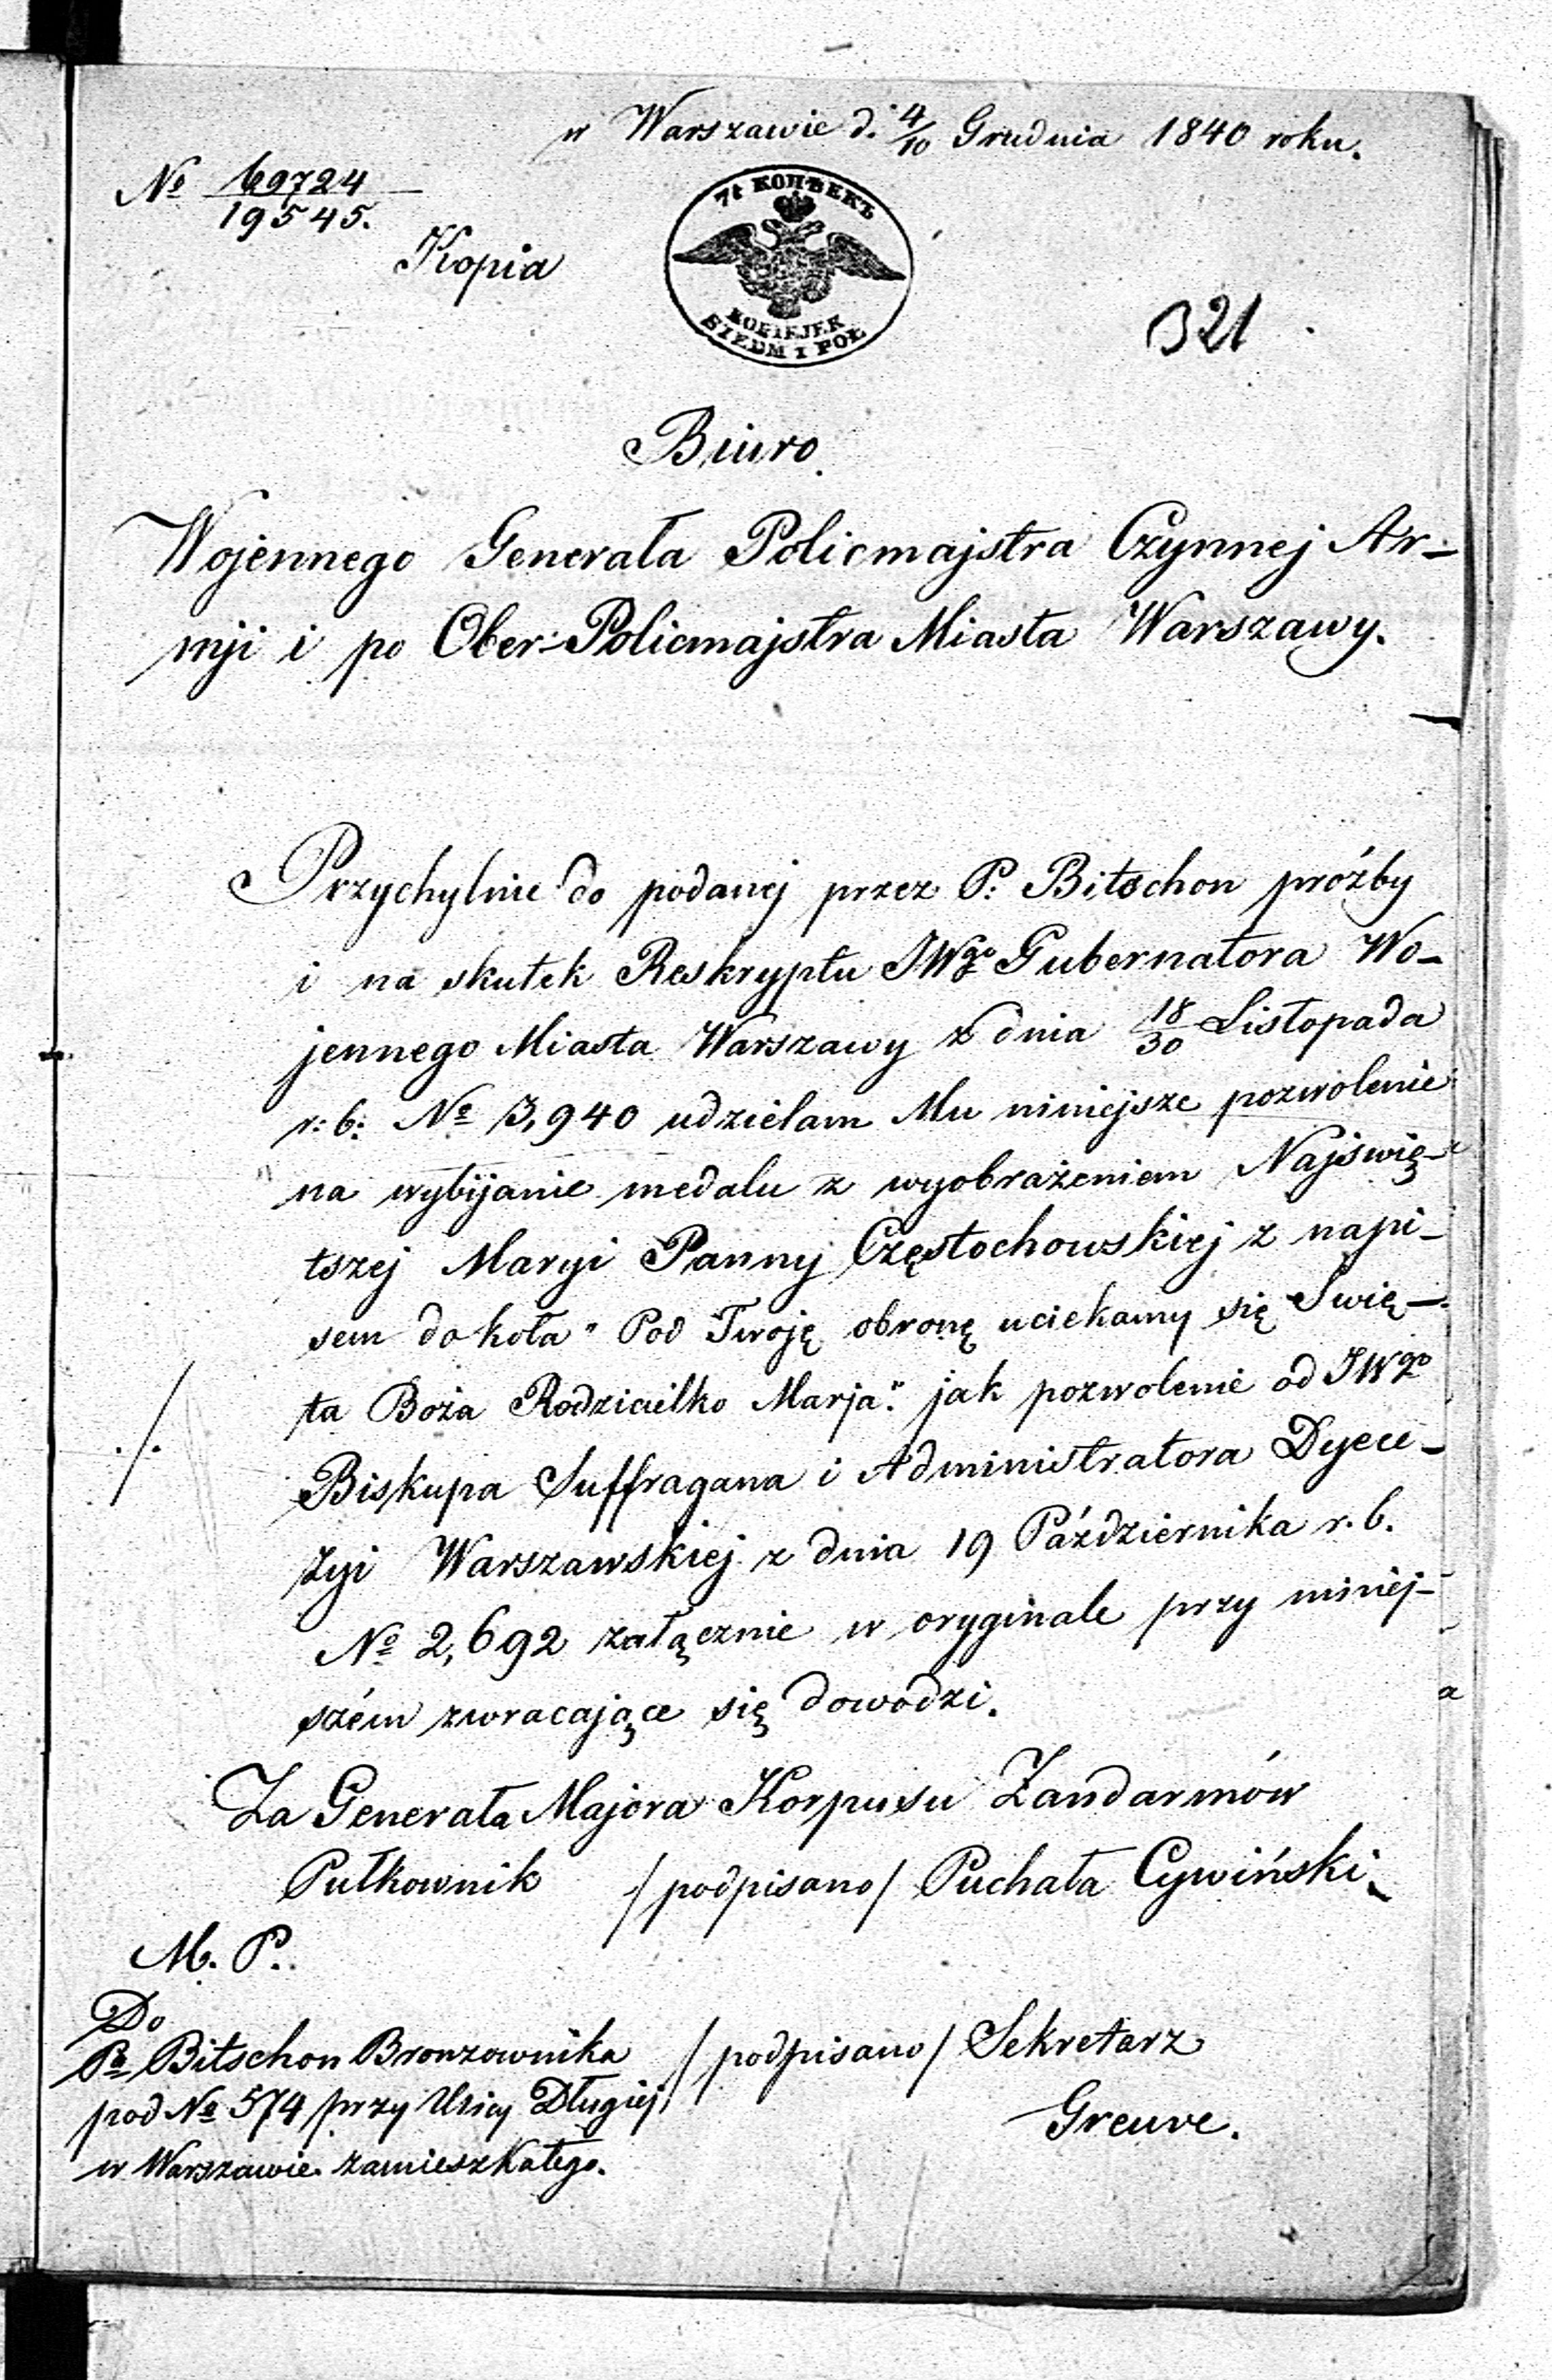 w Warszawie d. 4/10 Grudnia 1840 roku.
№ 69724/19545.
Kopia
7½ КОПѢЕКЪ
KOPIEJEK
SIEDM I POŁ
321
Biuro
Wojennego Generała Policmajstra Czynnej Ar-
mji i po Ober-Policmajstra Miasta Warszawy.
Przychylnie do podanej przez P. Bitschon próźby
i na skutek Reskryptu JWgo Gubernatora Wo-
jennego Miasta Warszawy z dnia 18/30 Listopada
r: b: № 3,940 udzielam Mu niniejsze pozwolenie
na wybijanie medalu z wyobrażeniem Najświę-
tszej Maryi Panny Częstochowskiej z napi-
sem do koła "Pod Twoję obronę uciekamy się Swię-
ta Boża Rodzicielko Marja." jak pozwolenie od JWgo
./.
Biskupa Suffragana i Administratora Dyece-
zyi Warszawskiej z dnia 19 Października r. b.
№ 2,692 załącznie w oryginale przy niniej-
szém zwracające się dowodzi.
Za Generała Majora Korpusu Żandarmów
Pułkownik /podpisano/ Puchała Cywiński
M. P.
Do
Pa Bitschon Bronzownika
pod № 574 przy Ulicy Długiej
w Warszawie zamieszkałego.
/podpisano/ Sekretarz
Greuve.